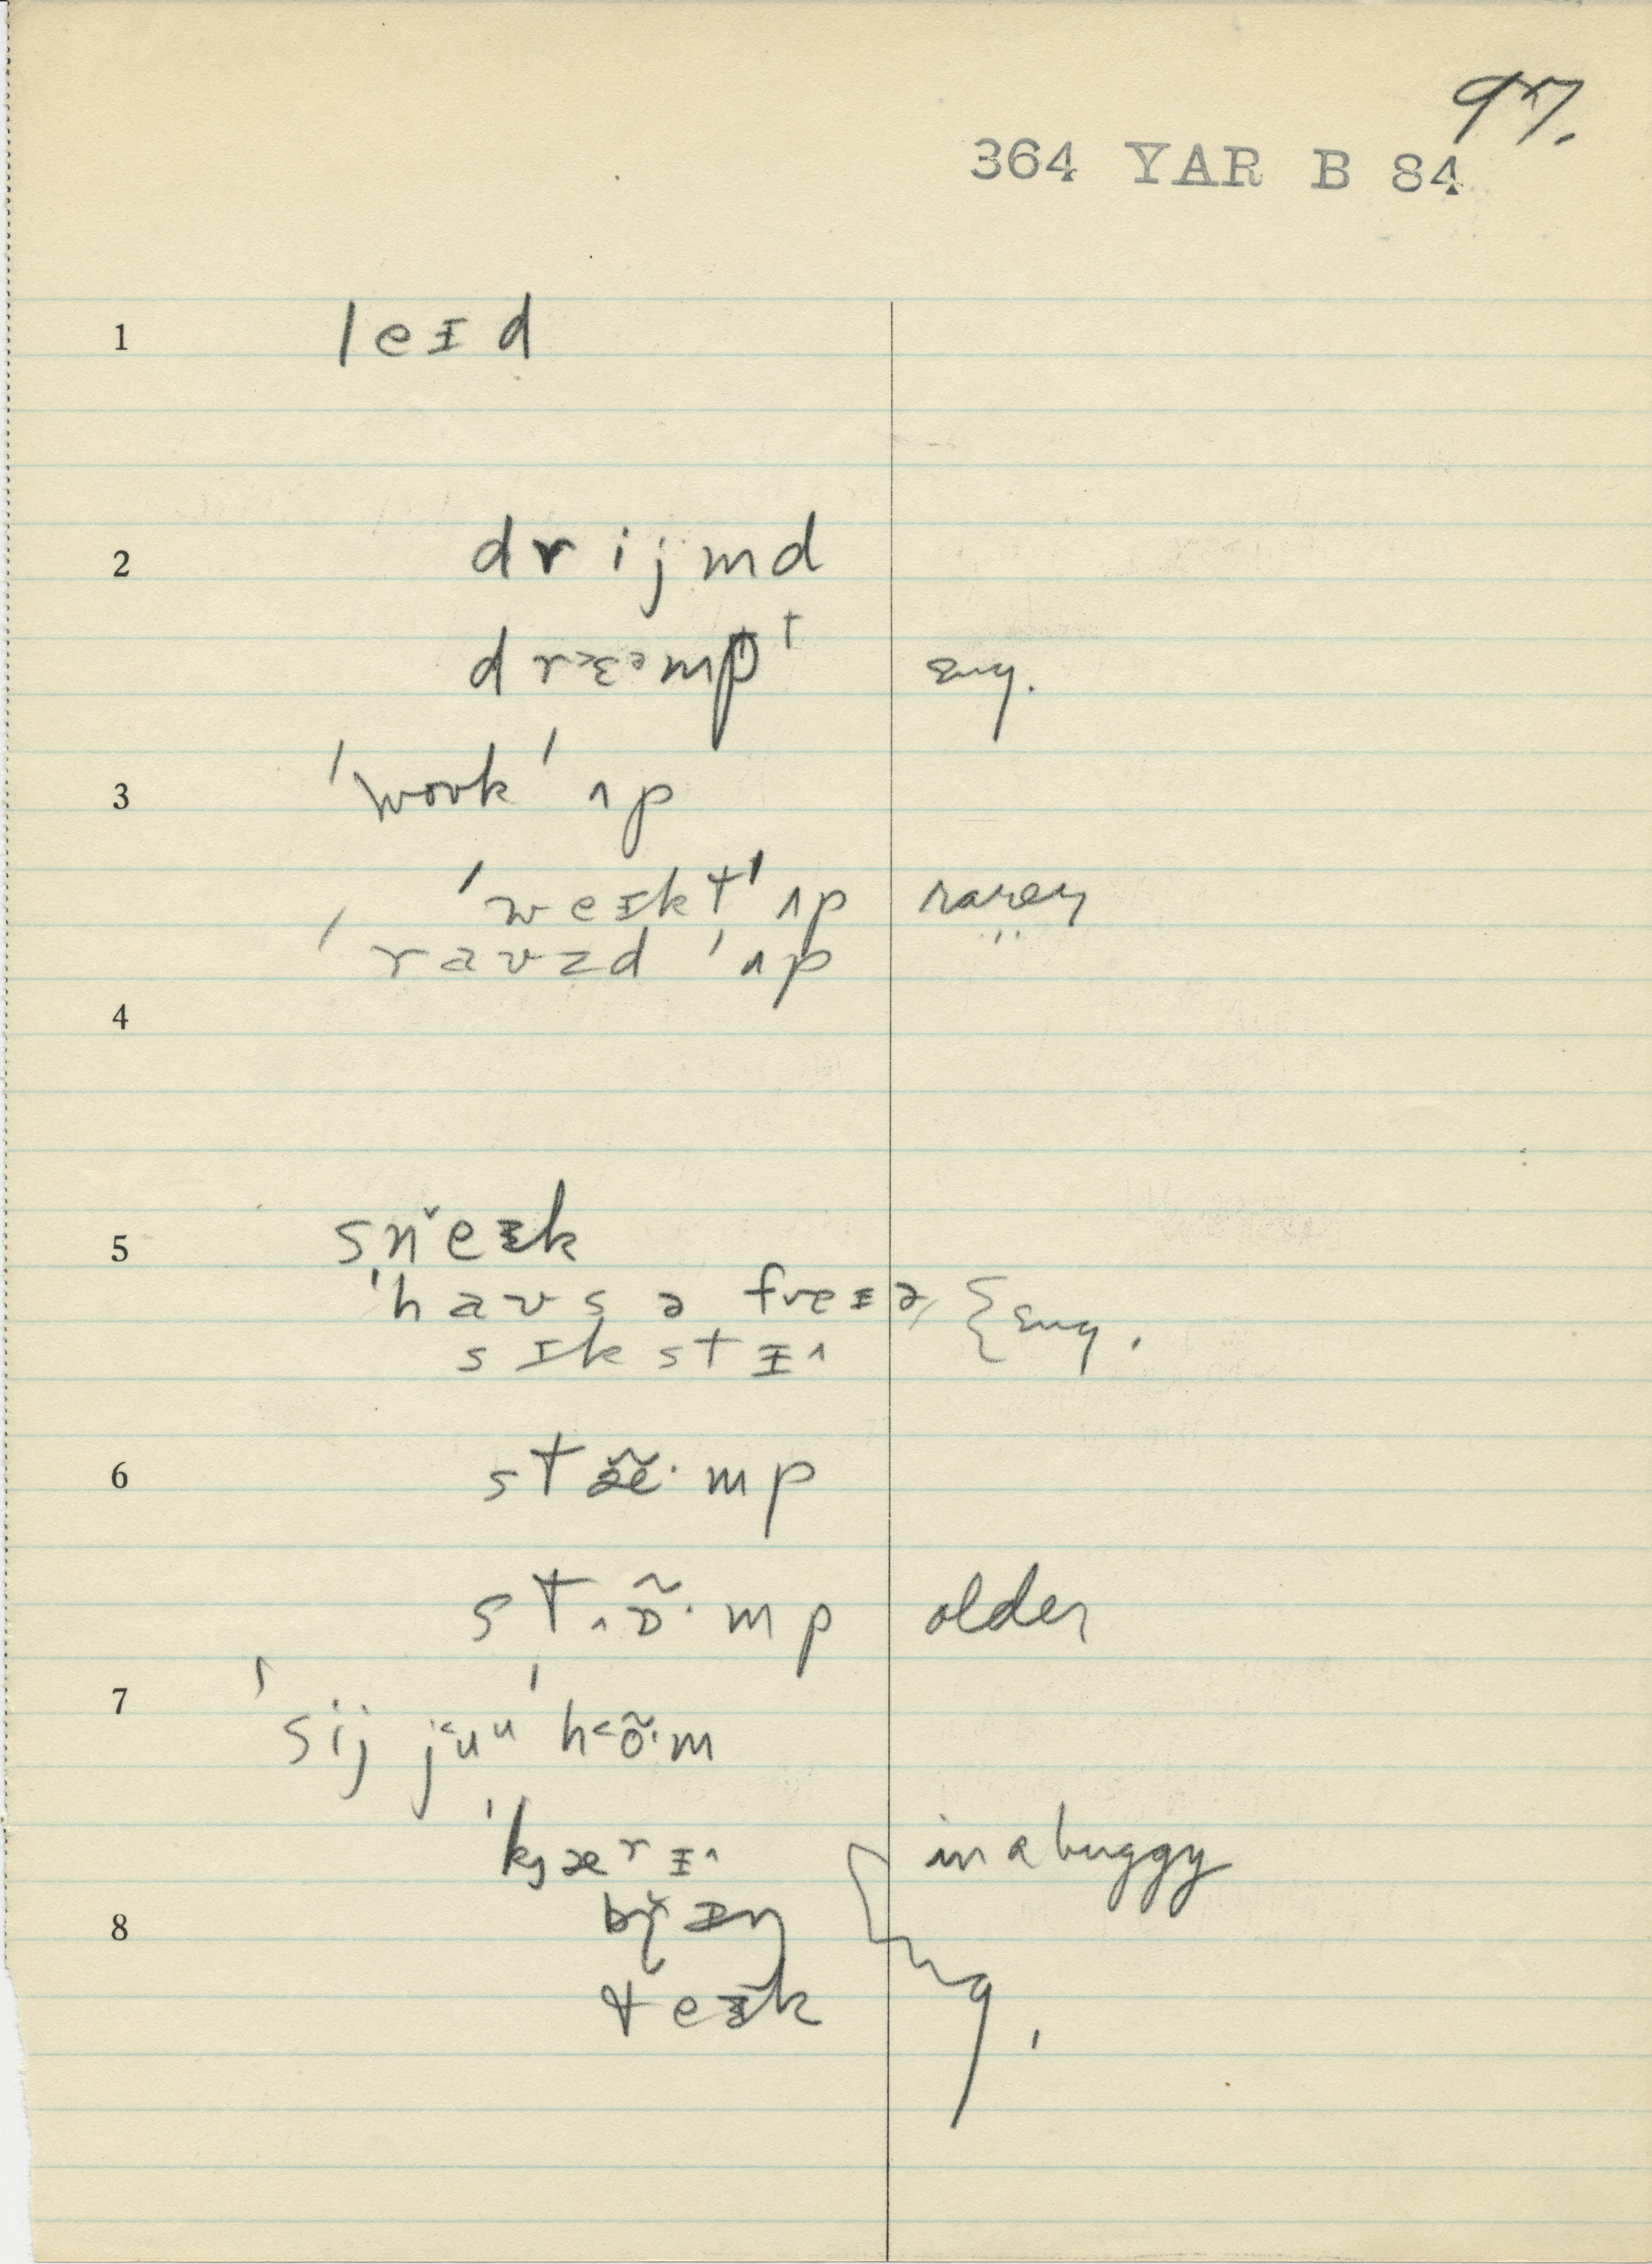 97.
364 YAR B 84
1 leɪd
2 drijmd
drɛmpt sug.
3 ˈwovk ˈʌp
ˈweɪkt ˈʌp rarely
ˈravzd ˈʌp
4
5 sněɪk
ˈhavs ə freɪə,
sɪkstɪ^ sug.
6 stæ̃·mp
st^ɒ̃·mp older
7 ˈsij j<uᵘ ˈh<õ·m
ˈkjærɪ^ in a buggy
8
teɪk sug.